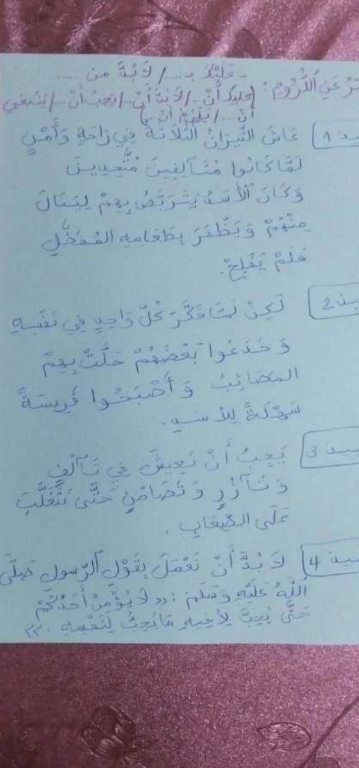 عَلَيْكَ بِـ... / لاَبُدَّ مِنْ ...
عَنِ اللُّزُومِ: عليكَ أَنْ.. / لاَبُدَّ أَنْ.. / يَجِبُ أَنْ.. / يَنْبَغِي
أن... / يَلْزَمُ أَنْ..
1 عَاشَ الثِّيرَانُ الثَّلاَثَةُ فِي رَاحَةٍ وَأَمْنٍ
لَمَّا كَانُوا مُتَآلِفِينَ مُتَّحِدِينَ
وَكَانَ الأَسَدُ يَتَرَبَّصُ بِهِمْ لِيَنَالَ
مِنْهُمْ وَيَظْفَرَ بِطَعَامِهِ المُفَضَّلِ
فَلَمْ يُفْلِحْ.
2 لَكِنْ لَمَّا فَكَّرَ كُلُّ وَاحِدٍ فِي نَفْسِهِ
وَخَدَعُوا بَعْضَهُمْ حَلَّتْ بِهِمْ
المَصَائِبُ وَأَصْبَحُوا فَرِيسَةً
سَهْلَةً لِلأَسَدِ.
3 يَجِبُ أَنْ نَعِيشَ فِي تَآلُفٍ
وَتَآزُرٍ وَتَضَامُنٍ حَتَّى نَتَغَلَّبَ
عَلَى العِقَابِ.
4 لاَبُدَّ أَنْ نَعْمَلَ بِقَوْلِ الرَّسُولِ صَلَّى
اللهُ عَلَيْهِ وَسَلَّمَ: "لاَ يُؤْمِنُ أَحَدُكُمْ
حَتَّى يُحِبَّ لِأَخِيهِ مَا يُحِبُّ لِنَفْسِهِ"